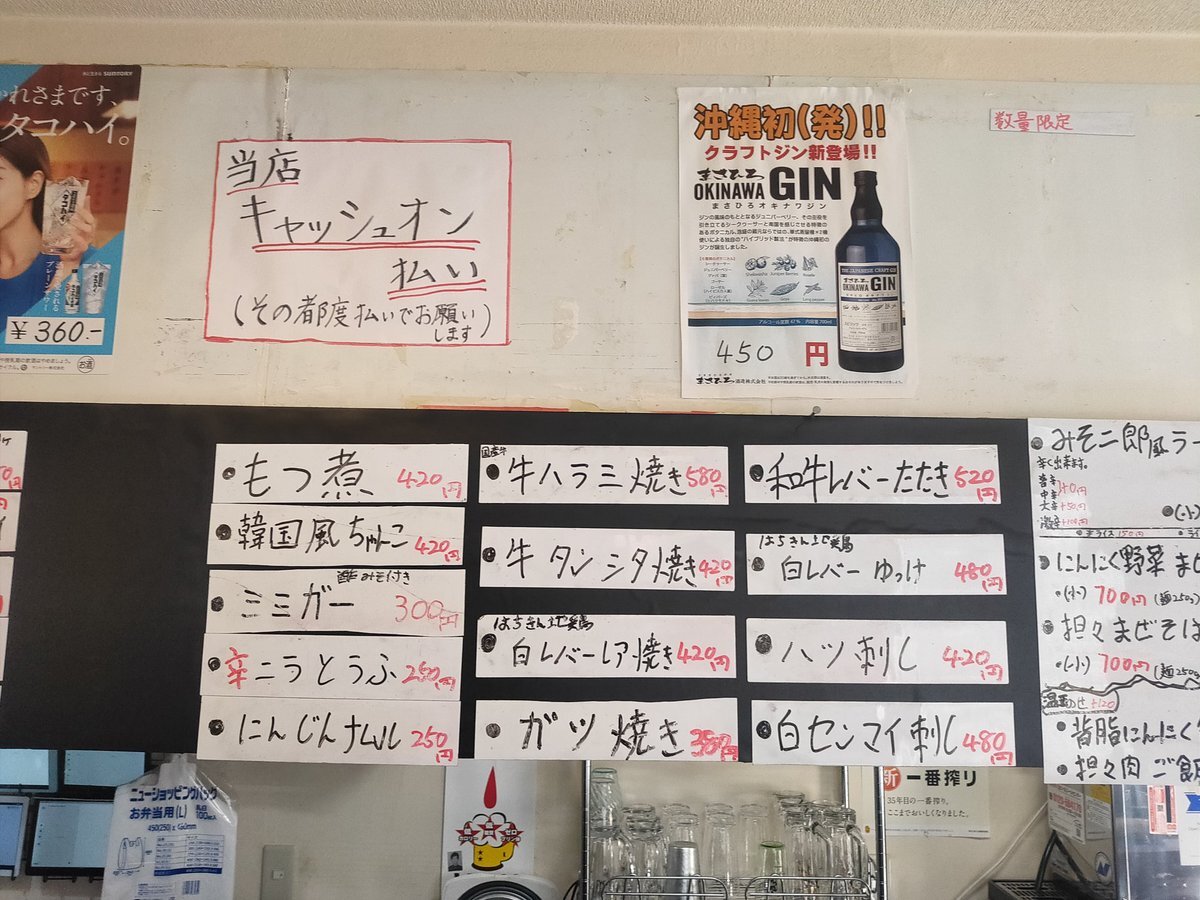 水と生きる SUNTORY
かれさまです、
タコハイ。
¥360.-
お酒
当店
キャッシュオン
払い
(その都度払いでお願い
します)
沖縄初(発)!!
クラフトジン新登場!!
まさひろ
OKINAWA GIN
まさひろオキナワジン
ジンの風味のもととなるジュニパーベリー、その余韻を
450 円
まさひろ酒造株式会社
数量限定
もつ煮 420円
韓国風ちゃんこ 420円
酢みそ付き
ミミガー 300円
辛ニラとうふ 250円
にんじんナムル 250円
国産牛
牛ハラミ焼き 580円
牛タンシタ焼き 420円
はちきん地鶏
白レバーレア焼き 420円
ガツ焼き
和牛レバーたたき 520円
はちきん地鶏
白レバーゆっけ 480円
ハツ刺し 420円
白センマイ刺し 480円
みそ二郎風ラー
辛く出来ます。
中辛
大辛 +50円
激辛 +100円
ライス 150円
にんにく野菜まぜ
(小) 700円 (麺250g)
担々まぜそば
(小) 700円 (麺250g
背脂にんにく
担々肉ご飯
ニューショッピングバッグ
お弁当用(L) 乳白 100枚入
新 一番搾り
35年目の一番搾り。
ここまでおいしくなりました。